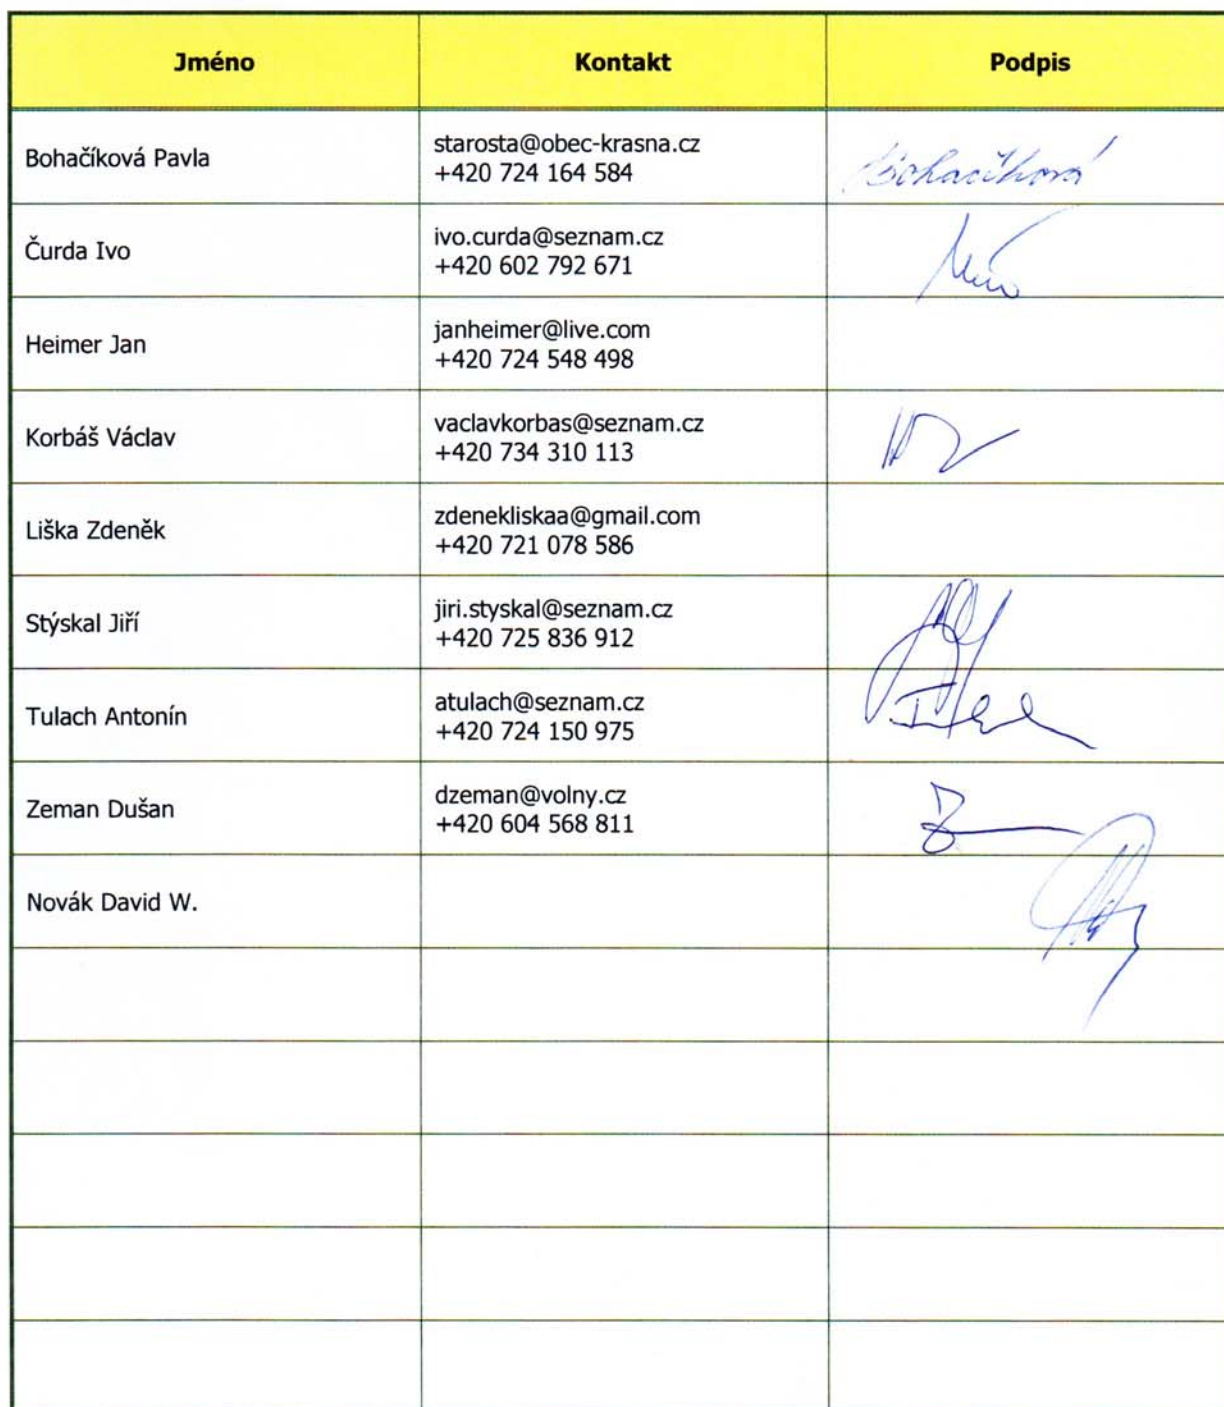 Jméno Kontakt Podpis
Bohačíková Pavla
starosta@obec-krasna.cz
+420 724 164 584
Bohačíková
Čurda Ivo
ivo.curda@seznam.cz
+420 602 792 671
Heimer Jan
janheimer@live.com
+420 724 548 498
Korbáš Václav
vaclavkorbas@seznam.cz
+420 734 310 113
Liška Zdeněk
zdenekliskaa@gmail.com
+420 721 078 586
Stýskal Jiří
jiri.styskal@seznam.cz
+420 725 836 912
Tulach Antonín
atulach@seznam.cz
+420 724 150 975
Zeman Dušan
dzeman@volny.cz
+420 604 568 811
Novák David W.